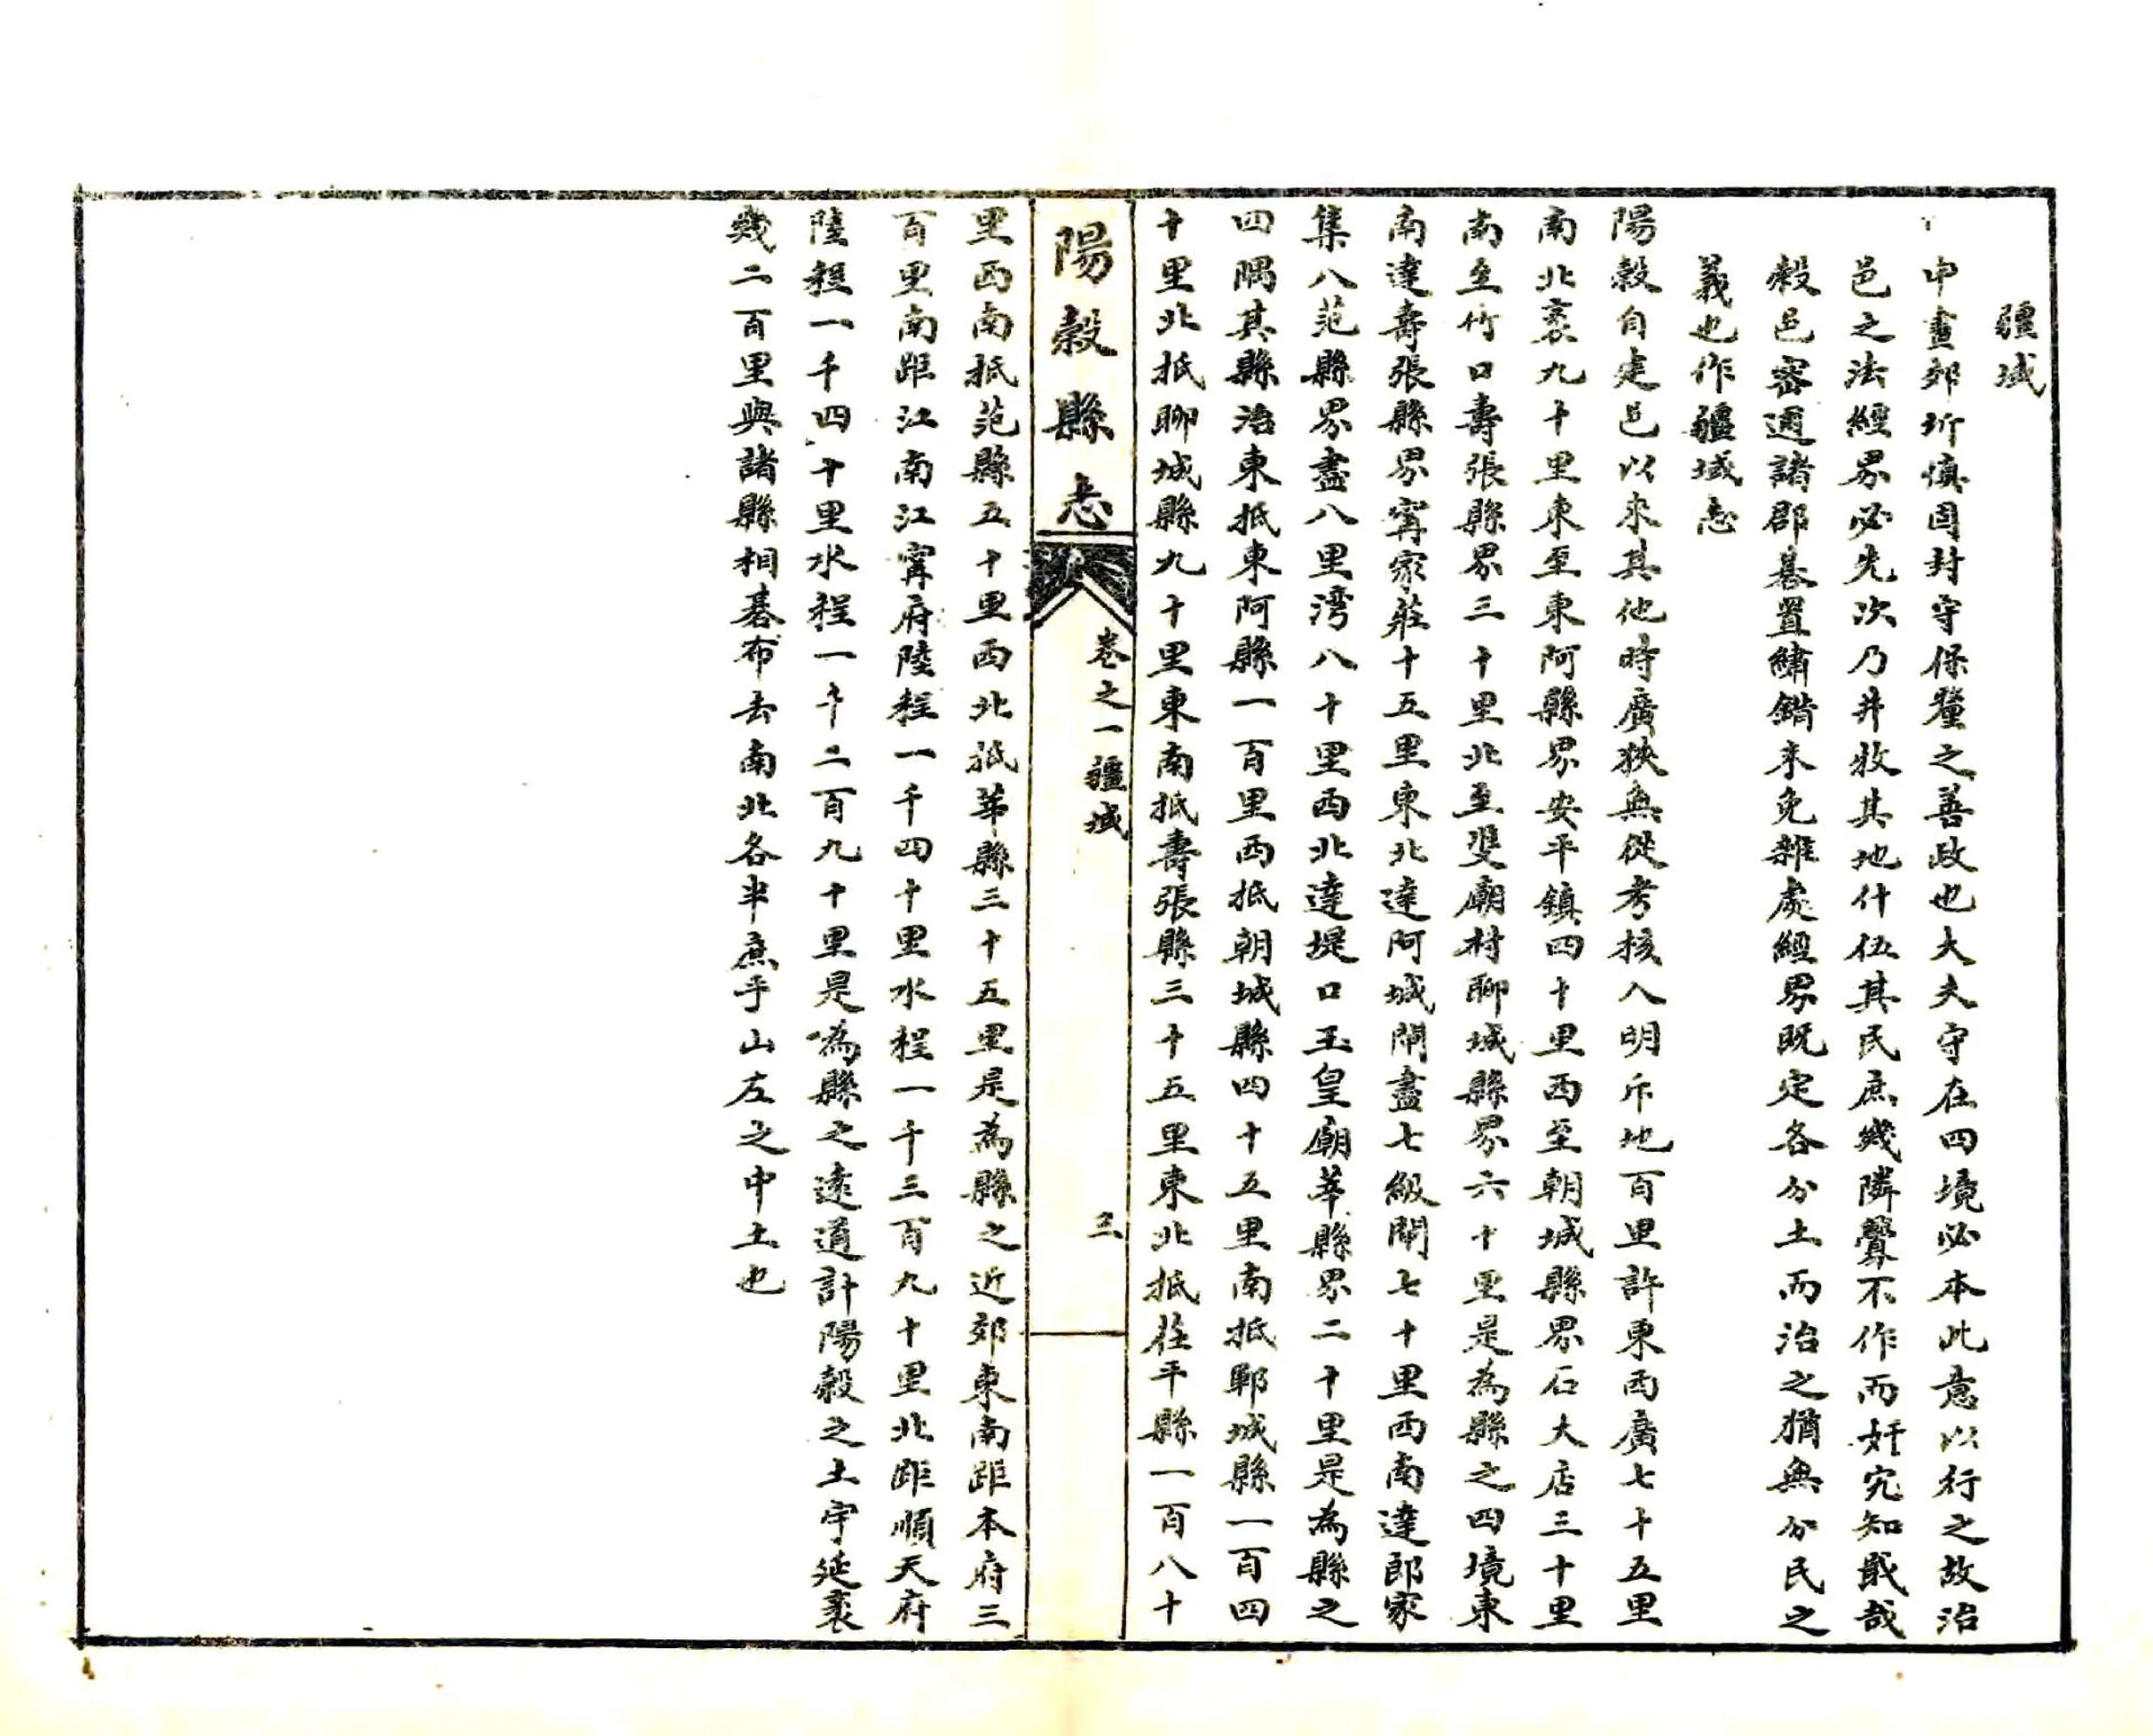 疆域
申畫郊圻慎固封守保釐之善政也大夫守在四境必本此意以行之故治
邑之法經界必先次乃井牧其地什伍其民庶幾隣釁不作而奸宄知戢哉
穀邑密邇諸郡碁置繡錯未免雜處經界既定各分土而治之猶無分民之
義也作疆域志
陽穀自建邑以來其他時廣狹無從考核入明斥地百里許東西廣七十五里
南北袤九十里東至東阿縣界安平鎮四十里西至朝城縣界石大店三十里
南至竹口壽張縣界三十里北至雙廟村聊城縣界六十里是為縣之四境東
南達壽張縣界寗家莊十五里東北達阿城閘盡七級閘七十里西南達郎家
集八范縣界盡八里湾八十里西北達堤口玉皇廟莘縣界二十里是為縣之
四隅其縣治東抵東阿縣一百里西抵朝城縣四十五里南抵鄆城縣一百四
十里北抵聊城縣九十里東南抵壽張縣三十五里東北抵茌平縣一百八十
陽穀縣志
卷之一疆域
三
里西南抵范縣五十里西北抵莘縣三十五里是為縣之近郊東南距本府三
百里南距江南江寗府陸程一千四十里水程一千三百九十里北距順天府
陸程一千四十里水程一千二百九十里是為縣之遠道計陽穀之土宇延袤
幾二百里與諸縣相碁布去南北各半庶乎山左之中土也